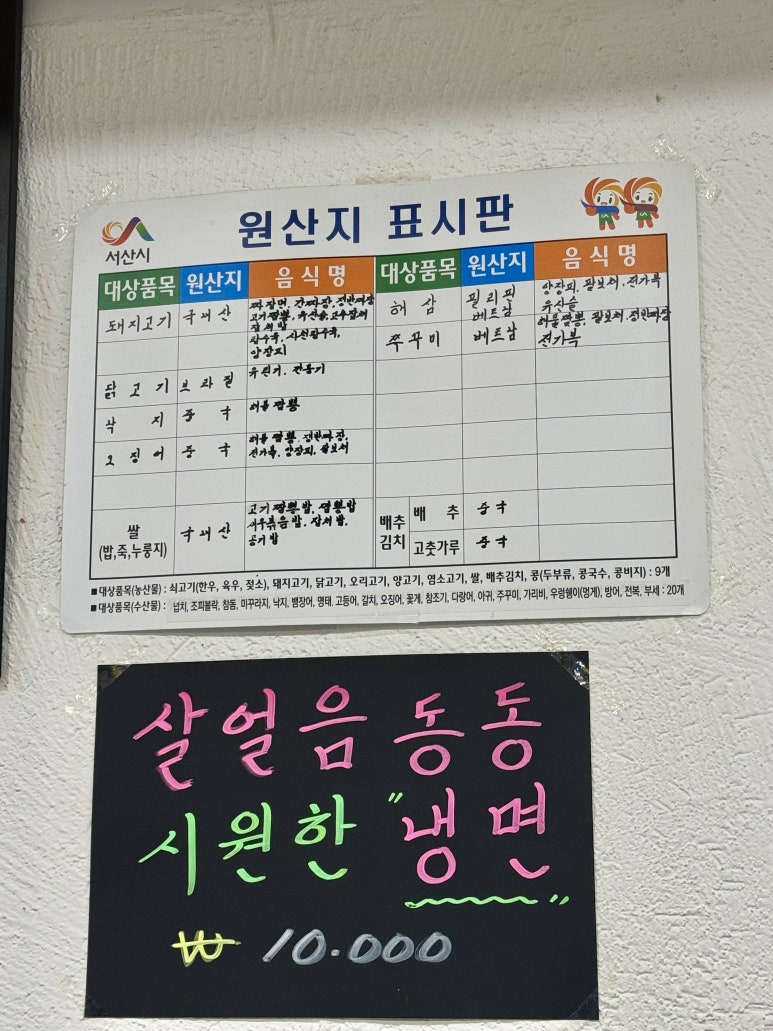 서산시
원산지 표시판
대상품목 원산지 음식명 대상품목 원산지 음식명
돼지고기 국내산 짜장면, 간짜장, 쟁반짜장
고기짬뽕, 유산슬, 고추잡채
잡채밥
탕수육, 사천탕수육,
양장피
해삼 필리핀 베트남 양장피, 팔보채, 전가복
유산슬
쭈꾸미 베트남 해물짬뽕, 팔보채, 쟁반짜장
전가복
닭고기 브라질 유린기, 깐풍기
낙지 중국 해물짬뽕
오징어 중국 해물짬뽕, 쟁반짜장,
전가복, 양장피, 팔보채
쌀
(밥,죽,누룽지) 국내산 고기짬뽕밥, 짬뽕밥
새우볶음밥, 잡채밥,
공기밥
배추김치 배추 중국
고춧가루 중국
■ 대상품목(농산물) : 쇠고기(한우, 육우, 젖소), 돼지고기, 닭고기, 오리고기, 양고기, 염소고기, 쌀, 배추김치, 콩(두부류, 콩국수, 콩비지) : 9개
■ 대상품목(수산물) : 넙치, 조피볼락, 참돔, 미꾸라지, 낙지, 뱀장어, 명태, 고등어, 갈치, 오징어, 꽃게, 참조기, 다랑어, 아귀, 주꾸미, 가리비, 우렁쉥이(멍게), 방어, 전복, 부세 : 20개
살얼음 동동
시원한 "냉면"
₩ 10.000